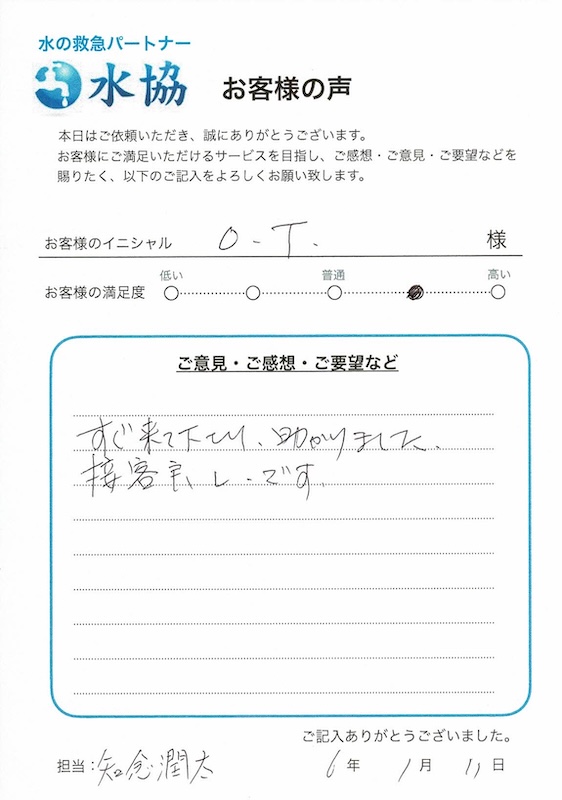 水の救急パートナー
水協 お客様の声
本日はご依頼いただき、誠にありがとうございます。
お客様にご満足いただけるサービスを目指し、ご感想・ご意見・ご要望などを
賜りたく、以下のご記入をよろしくお願い致します。
お客様のイニシャル O-T. 様
低い 普通 高い
お客様の満足度
ご意見・ご感想・ご要望など
すぐ来て下さり、助かりました。
接客良し.です。
ご記入ありがとうございました。
担当:知念潤太 6年 1月 11日